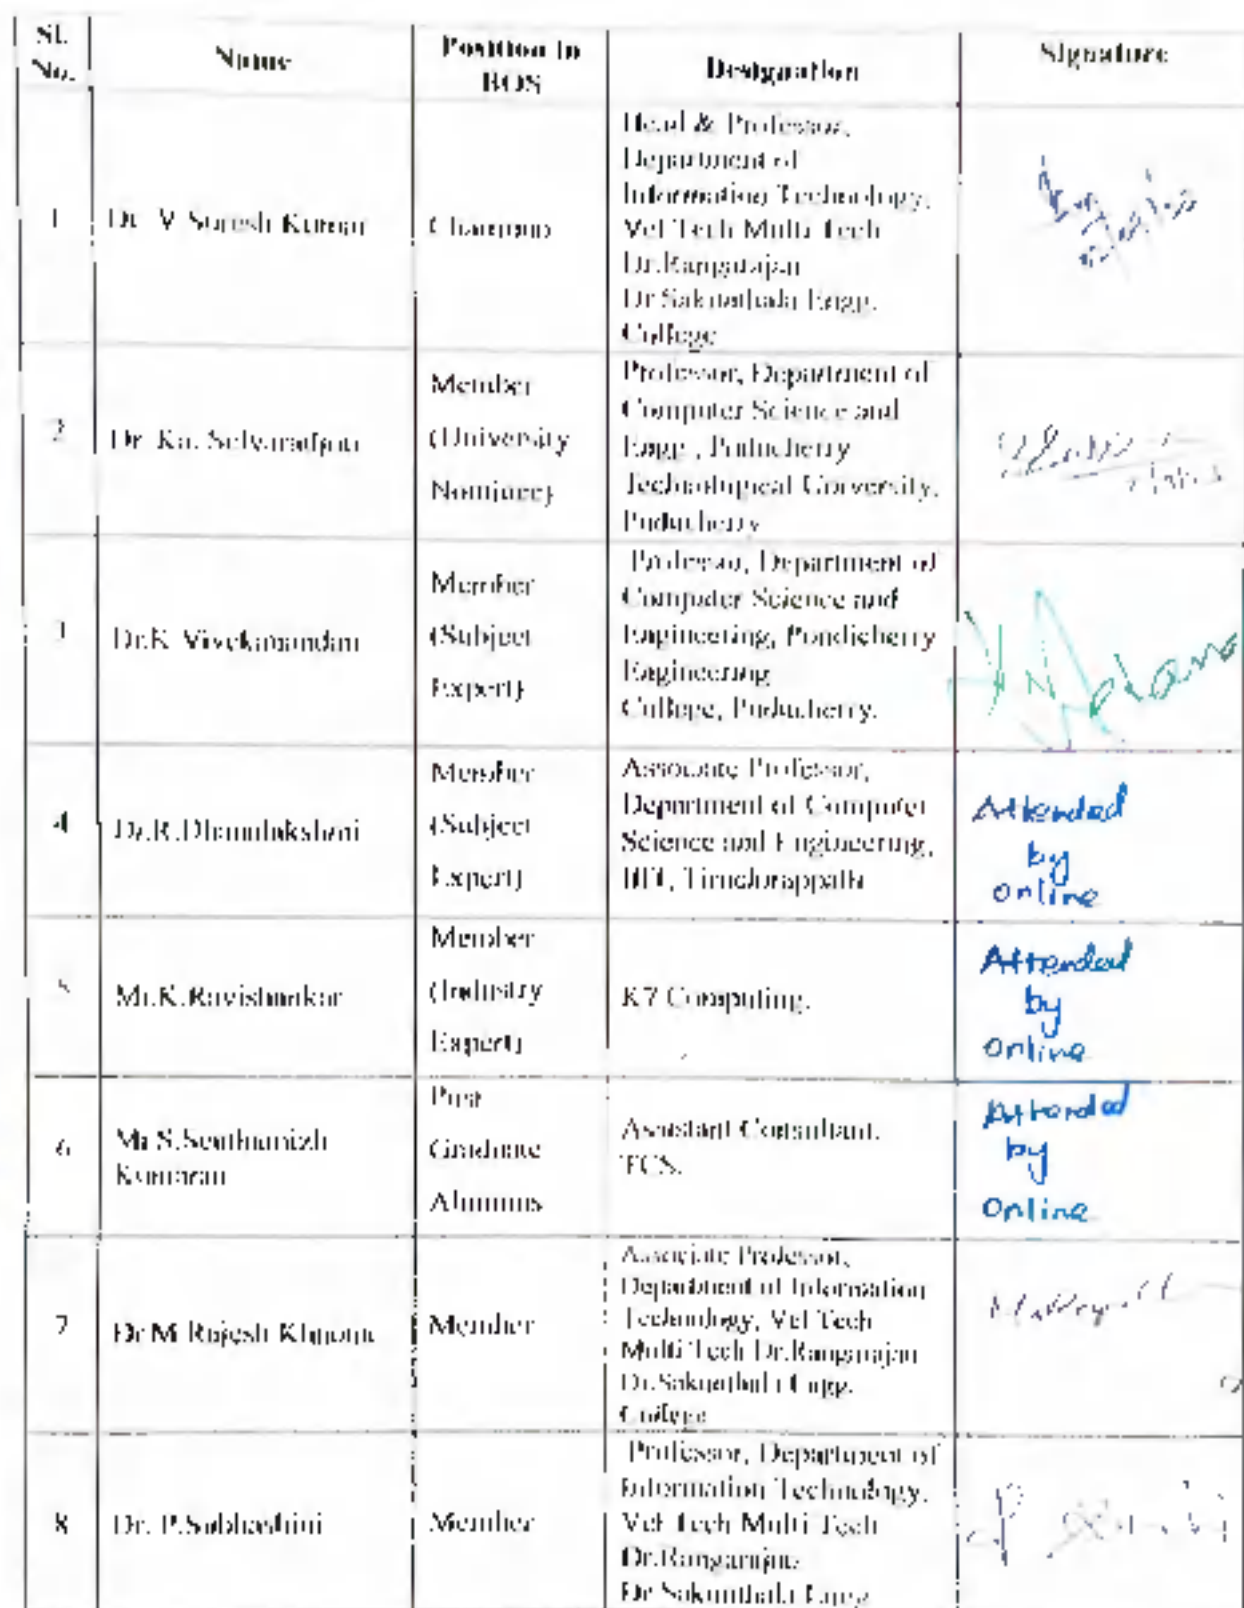 Sl. No. Name Position in BOS Designation Signature
1 Dr. V.Suresh Kumar Chairman
Head & Professor,
Department of
Information Technology,
Vel Tech Multi Tech
Dr.Rangarajan
Dr.Sakunthala Engg.
College
2 Dr. Ka. Selvaradjou
Member
(University
Nominee)
Professor, Department of
Computer Science and
Engg., Puducherry
Technological University,
Puducherry
3 Dr.K.Vivekanandan
Member
(Subject
Expert)
Professor, Department of
Computer Science and
Engineering, Pondicherry
Engineering
College, Puducherry.
4 Dr.R.Dhanalakshmi
Member
(Subject
Expert)
Associate Professor,
Department of Computer
Science and Engineering,
Attended
by
online
5 Mr.K.Ravishankar
Member
(Industry
Expert)
K7 Computing.
Attended
by
online
6 Mr.S.Senthamizh
Kumaran
Post
Graduate
Alumnus
Assistant Consultant,
TCS.
Attended
by
online
7 Dr.M.Rajesh Khanna Member
Associate Professor,
Department of Information
Technology, Vel Tech
Multi Tech Dr.Rangarajan
Dr.Sakunthala Engg.
College
8 Dr. P.Subhashini Member
Professor, Department of
Information Technology,
Vel Tech Multi Tech
Dr.Rangarajan
Dr.Sakunthala Engg.